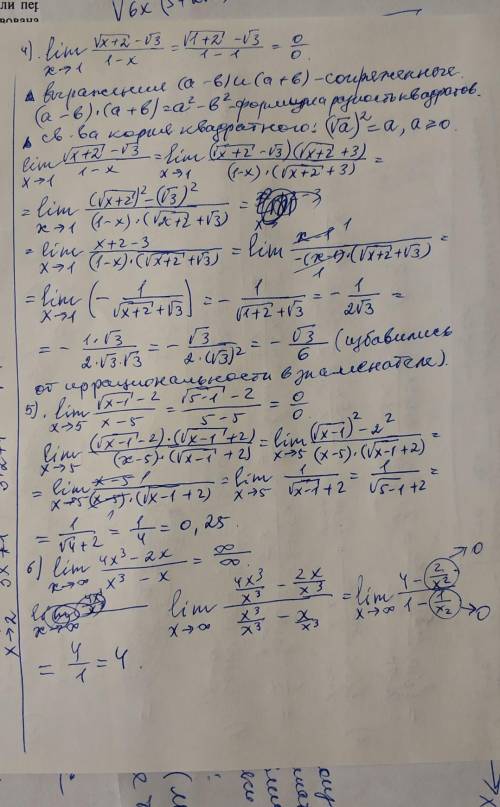 ли пер
√6x
4). lim x→1 (√(x+2) - √3)/(1-x) = (√(1+2) - √3)/(1-1) = 0/0.
выражения (a-b) и (a+b) - сопряженные.
(a-b)·(a+b) = a² - b² - формула разность квадратов.
св-ва корня квадратного: (√a)² = a, a ≥ 0.
lim x→1 (√(x+2) - √3)/(1-x) = lim x→1 ((√(x+2) - √3)(√(x+2) + 3))/((1-x)·(√(x+2) + 3)) =
= lim x→1 ((√(x+2))² - (√3)²)/((1-x)·(√(x+2) + √3)) =
= lim x→1 (x+2-3)/((1-x)·(√(x+2) + √3)) = lim (x-1) 1/(-(x-1)·(√(x+2) + √3)) 1 =
= lim x→1 (- 1/(√(x+2) + √3)) = - 1/(√(1+2) + √3) = - 1/(2√3) =
= - (1·√3)/(2·√3·√3) = - √3/(2·(√3)²) = - √3/6 (избавились
от иррациональности в знаменателе).
5). lim x→5 (√(x-1) - 2)/(x-5) = (√(5-1) - 2)/(5-5) = 0/0
lim x→5 ((√(x-1) - 2)·(√(x-1) + 2))/((x-5)·(√(x-1) + 2)) = lim x→5 ((√(x-1))² - 2²)/((x-5)·(√(x-1) + 2)) =
= lim x→5 (x-5) 1/((x-5)·(√(x-1) + 2)) 1 = lim x→5 1/(√(x-1) + 2) = 1/(√(5-1) + 2) =
= 1/(√4 + 2) = 1/4 = 0,25.
6) lim x→∞ (4x³ - 2x)/(x³ - x) = ∞/∞
lim x→∞ (4x³/x³ - 2x/x³)/(x³/x³ - x/x³) = lim x→∞ (4 - 2/x²)/(1 - 1/x²) →0 →0
= 4/1 = 4.
x→2